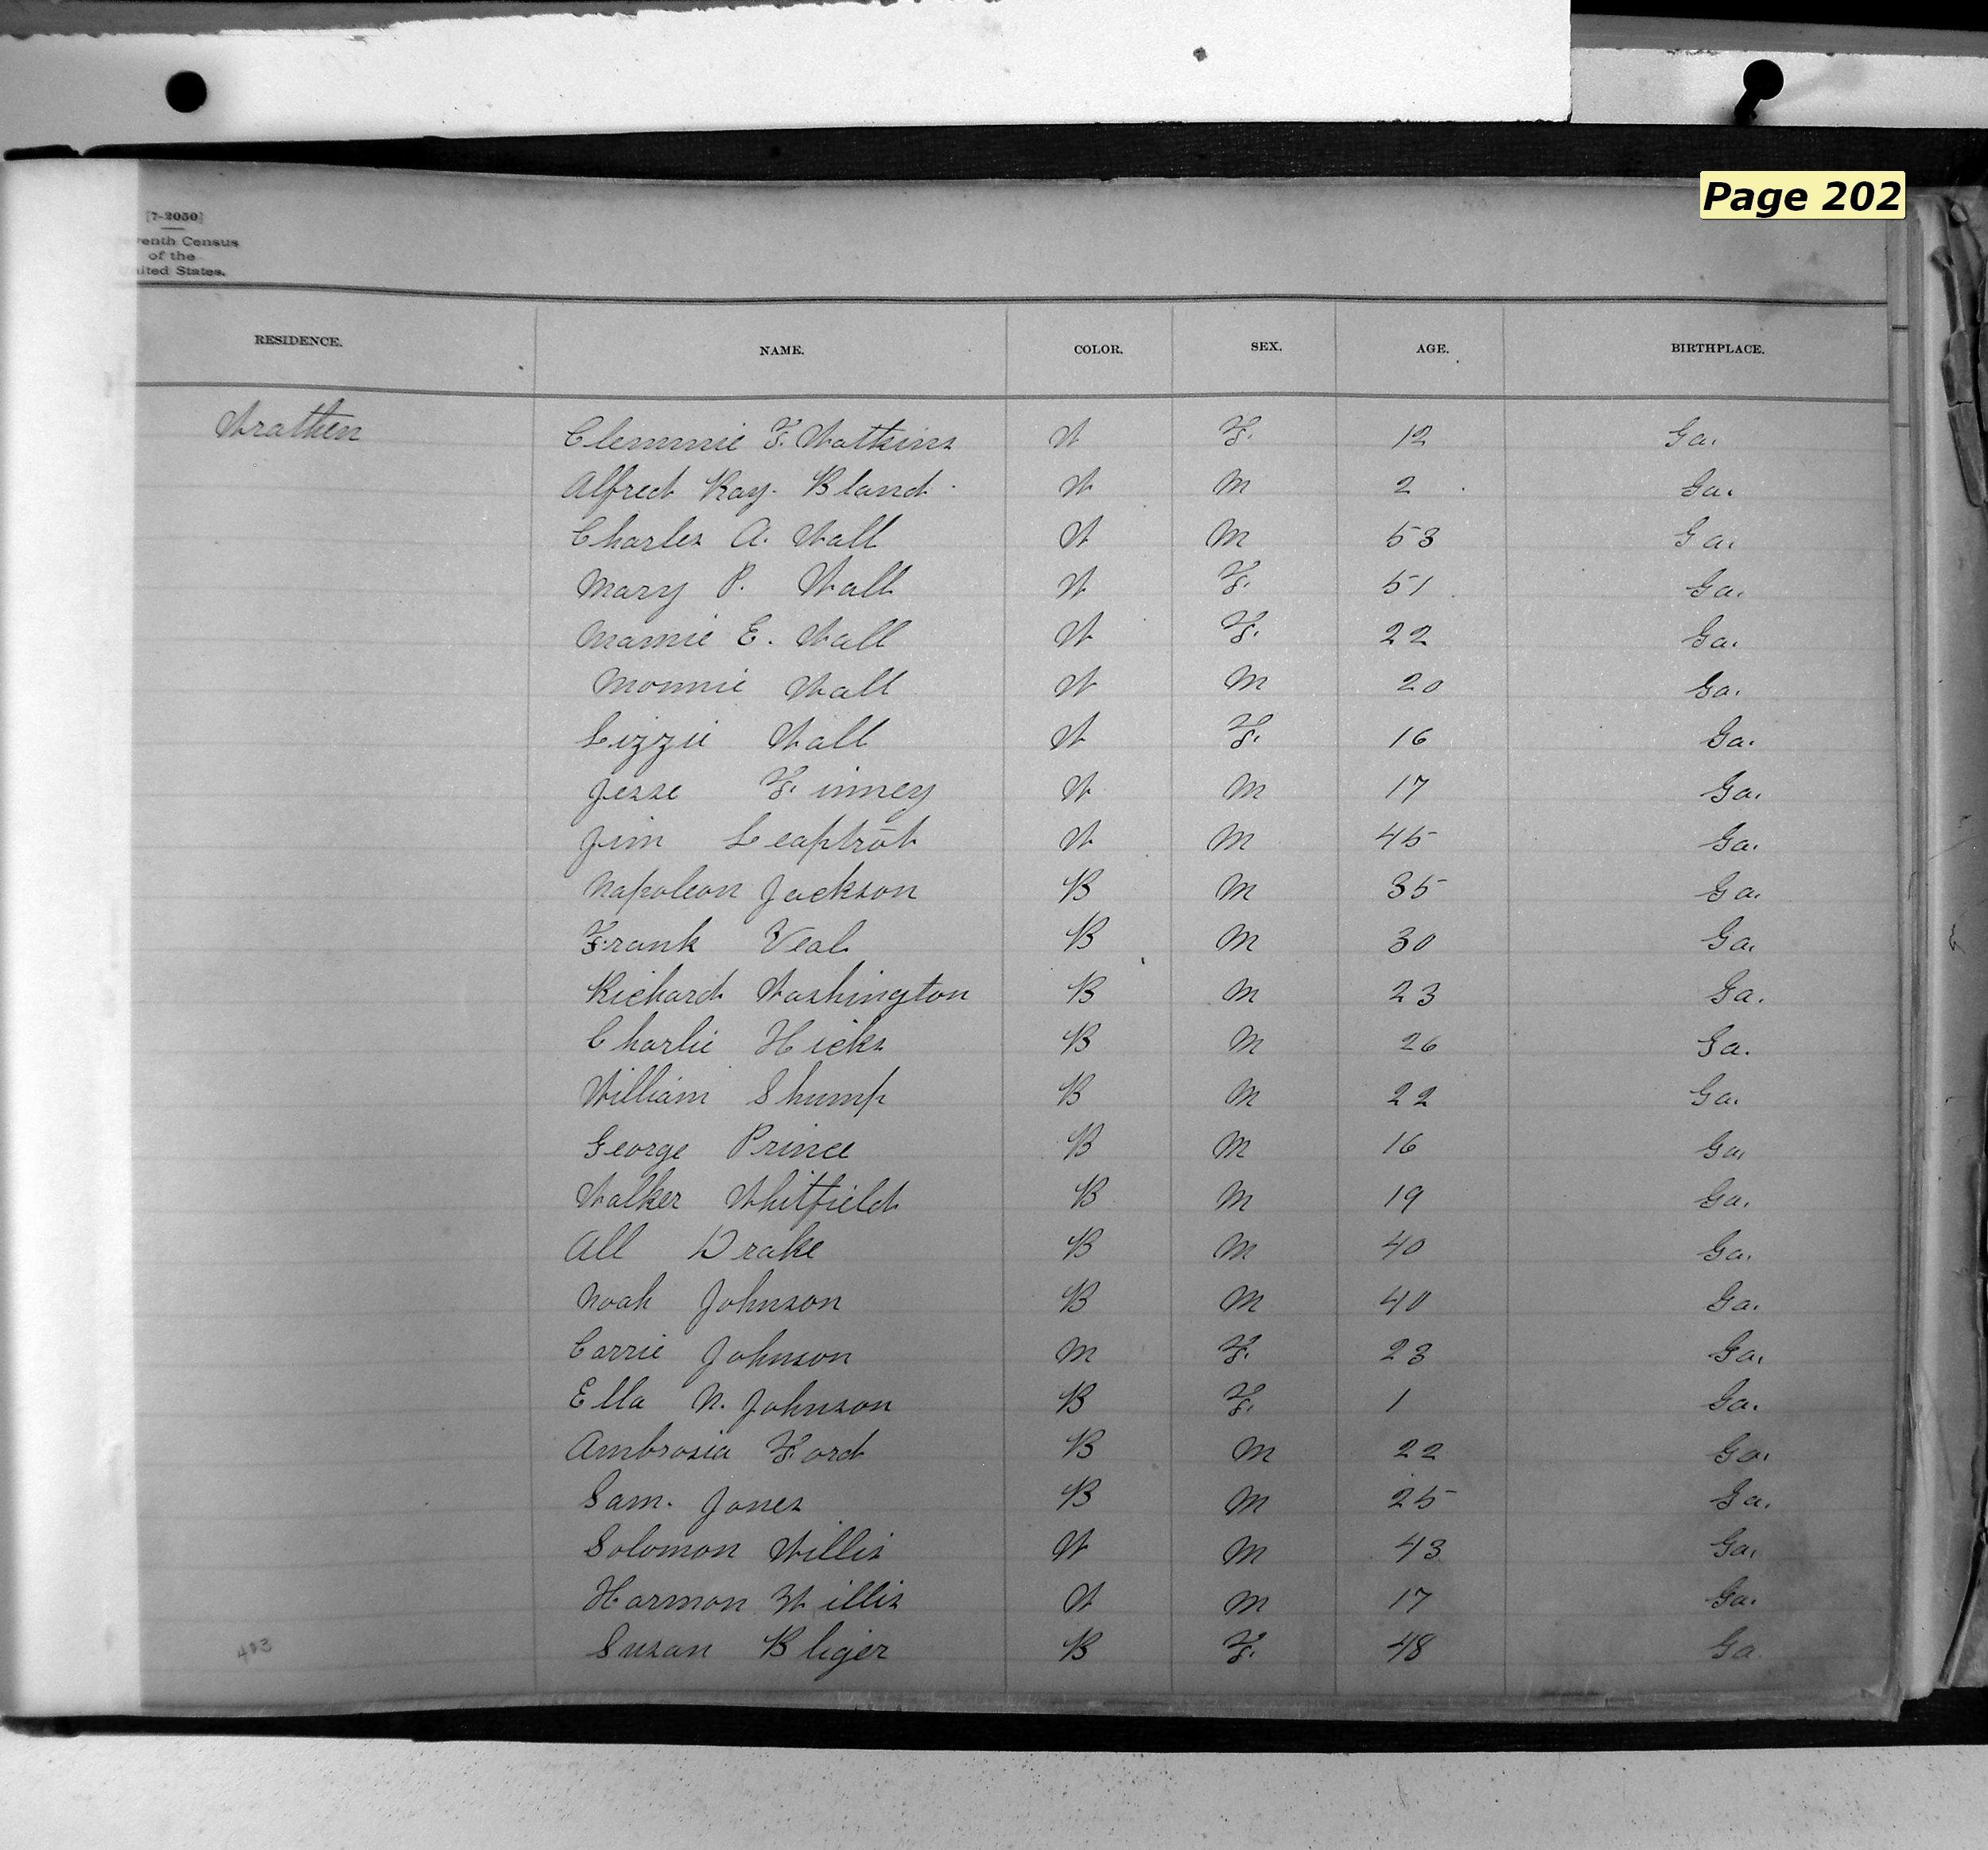 Page 202
[7-2050]
enth Census
of the
ited States.
RESIDENCE. NAME. COLOR. SEX. AGE. BIRTHPLACE.
Warthen Clemmie F. Watkins W F. 12 Ga.
Alfred Ray. Bland. W M 2 Ga.
Charles A. Wall W M 53 Ga.
Mary P. Wall W F. 51 Ga.
Mamie E. Wall W F. 22 Ga.
Monnie Wall W M 20 Ga.
Lizzie Wall W F. 16 Ga.
Jesse Finney W M 17 Ga.
Jim Leaptrot W M 45 Ga.
Napoleon Jackson B M 35 Ga.
Frank Veal B M 30 Ga.
Richard Washington B M 23 Ga.
Charlie Hicks B M 26 Ga.
William Shump B M 22 Ga.
George Prince B M 16 Ga.
Walker Whitfield B M 19 Ga.
All Drake B M 40 Ga.
Noah Johnson B M 40 Ga.
Carrie Johnson M F. 23 Ga.
Ella N. Johnson B F. 1 Ga.
Ambrosia Ford B M 22 Ga.
Sam. Jones B M 25 Ga.
Solomon Willis W M 43 Ga.
Harmon Willis W M 17 Ga.
403 Susan Bliger B F. 48 Ga